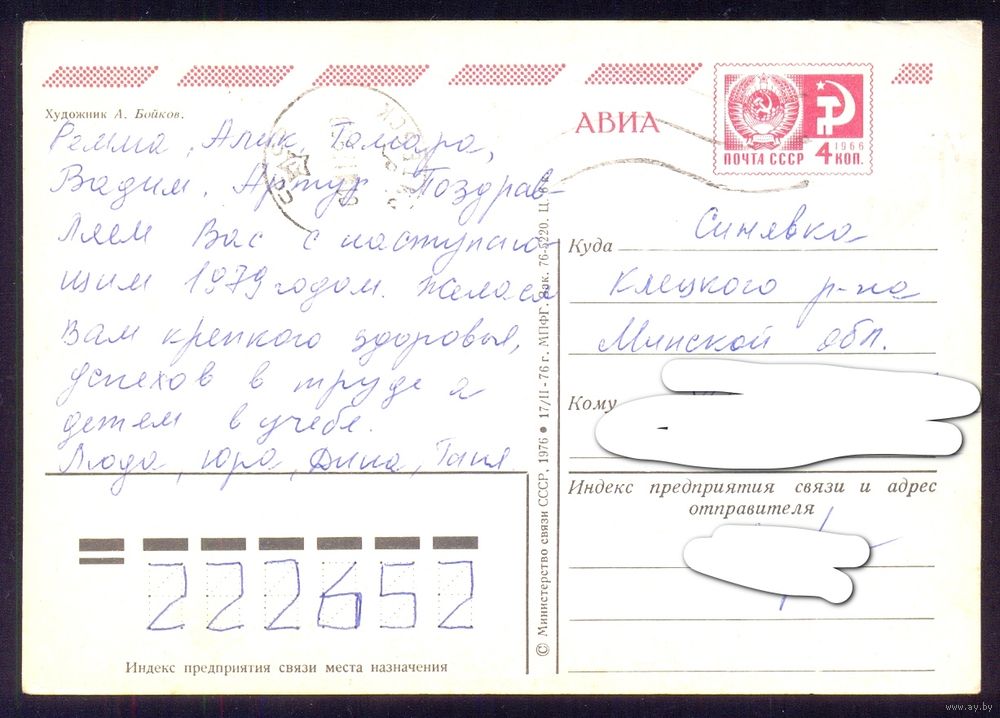 Художник А. Бойков.
Римма, Алик, Тамара,
Вадим, Артур Поздрав-
ляем Вас с наступаю-
щим 1979 годом. Желаем
Вам крепкого здоровья,
успехов в труде а
детям в учебе.
Люда, Юра, Дина, Таня
222652
Индекс предприятия связи места назначения
© Министерство связи СССР, 1976 ● 17/II-76 г. МПФГ. Зак. 76-5220. Ц.
АВИА
ПОЧТА СССР
1966
4 КОП.
Куда Синявка
Клецкого р-на
Минской обл.
Кому
Индекс предприятия связи и адрес
отправителя
www.ay.by